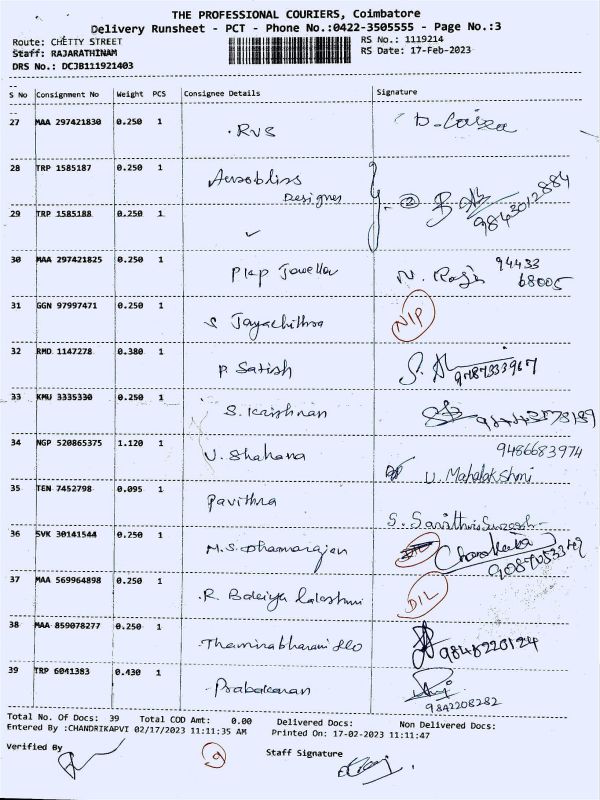 THE PROFESSIONAL COURIERS, Coimbatore
Delivery Runsheet - PCT - Phone No.:0422-3505555 - Page No.:3
Route: CHETTY STREET
RS No.: 1119214
Staff: RAJARATHINAM
RS Date: 17-Feb-2023
DRS No.: DCJB111921403
S No Consignment No Weight PCS Consignee Details Signature
27 MAA 297421830 0.250 1 RVS
28 TRP 1585187 0.250 1
Designer
29 TRP 1585188 0.250 1 9843012884
30 MAA 297421825 0.250 1 PKP Jewellor N. Raja 94433
68005
31 GGN 97997471 0.250 1 S Jayachithra N/P
32 RMD 1147278 0.380 1 P. Satish 9787333967
33 KMU 3335330 0.250 1 S. Krishnan
34 NGP 520865375 1.120 1 U. Shahana 9486683974
U. Mahalakshmi
35 TEN 7452798 0.095 1 Pavithra
36 SVK 30141544 0.250 1 M.S. Dhamarajan
37 MAA 569964898 0.250 1 D/L
38 MAA 859078277 0.250 1 9848220124
39 TRP 6041383 0.430 1 Prabakaran
9842208282
Total No. Of Docs: 39 Total COD Amt: 0.00 Delivered Docs: Non Delivered Docs:
Entered By :CHANDRIKAPVI 02/17/2023 11:11:35 AM Printed On: 17-02-2023 11:11:47
Verified By 9 Staff Signature